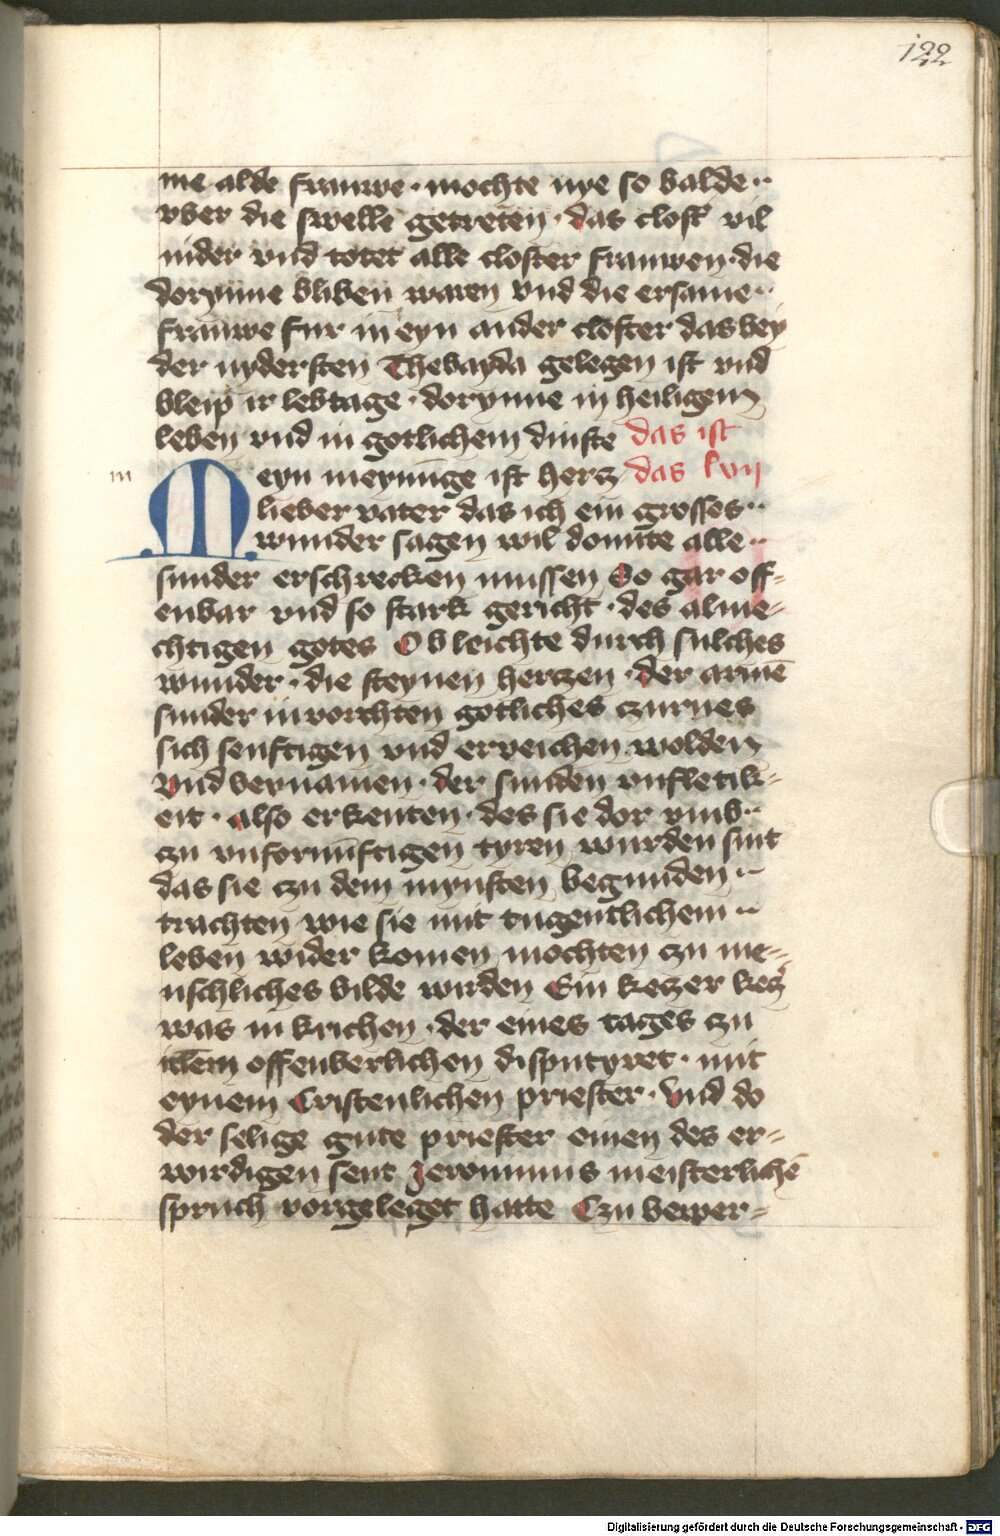 122
me alde frauwe · mochte nye so balde ··
vber die swelle getreten · das clost' vil
nider vnd totet alle closter frauwen · die
dorynne bliben waren vnd die ersame ··
frauwe fur in eyn ander closter das bey
der nydersten Thebayda gelegen ist vnd
bleip ir lebtage · dorynne in heiligem
leben vnd in gotlichem dinste das ist
m
Meyn meynūge ist hercz das lvii
lieber vater das ich ein grosses ··
wunder sagen wil domite alle ··
sunder erschrecken mussen So gar off-
enbar vnd so stark gericht · des alme-
chtigen gotes Ob leichte durch sulches
wunder · die steynen herczen · der armē
sunder in vorchten gotliches czurnes
sich senftigen vnd erweichen wolden
Vnd beynamen · der sunden vnfletik-
eit · also erkenten · des sie dor vmb ··
zu vnfornūftigen tyren wurden sint
das sie czu dem mynsten begunden ··
trachten wie sie mit tugentlichem ··
leben wider komen mochten zu me-
nschliches bilde wirden Ein keczer
was in krichen · der eines tages zu
offenberlichen disputyret · mit
eynem Cristenlichen priester · Vnd do
der selige gute priester einen des er-
wirdigen sent Jeronimus meisterlichē
spruch vorgeleget hatte Czu bewer-
Digitalisierung gefördert durch die Deutsche Forschungsgemeinschaft - DFG